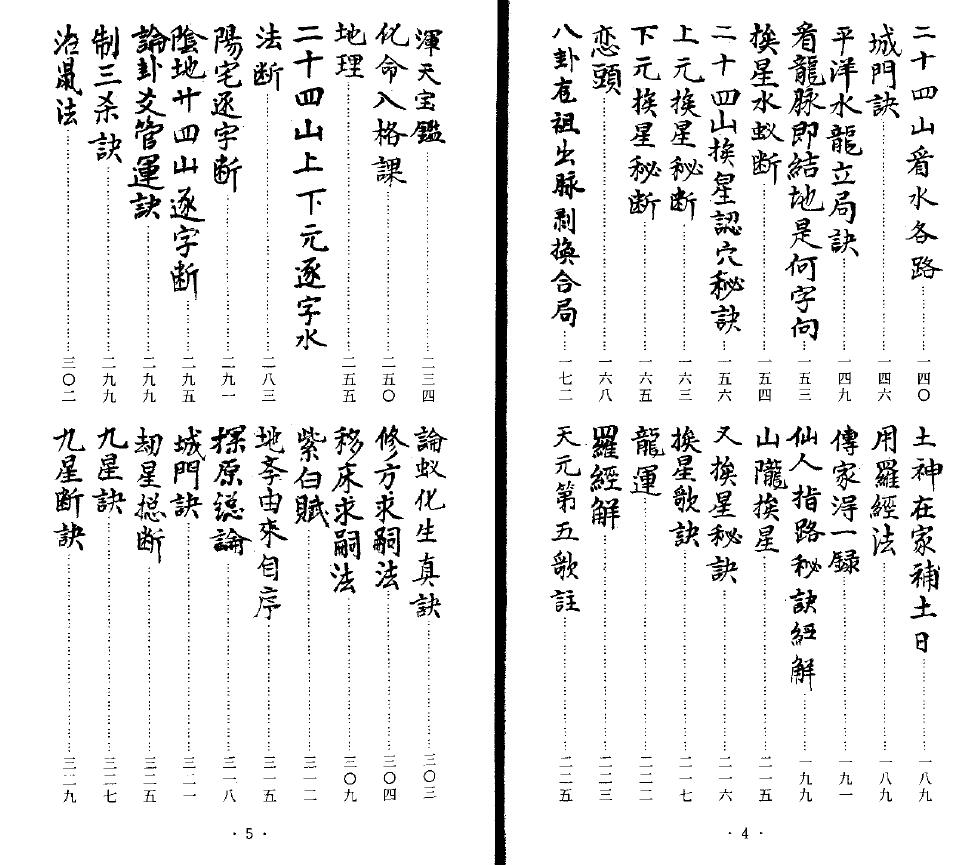 二十四山看水各路……一四〇
城門訣……一四六
平洋水龍立局訣……一四九
看龍脉即結地是何字向……一五三
挨星水蚁断……一五四
二十四山挨星認穴秘訣……一五六
上元挨星秘断……一六三
下元挨星秘断……一六五
恋頭……一六八
八卦䢖祖出脉剥換合局……一七二
土神在家補土日……一八九
用羅經法……一八九
傳家淂一録……一九一
仙人指路秘訣經解……一九九
山隴挨星……二一五
又挨星秘訣……二一六
挨星歌訣……二一七
龍運……二二二
羅經解……二二三
天元第五歌註……二二五
·4·
渾天宝鑑……二三四
化命入格課……二五〇
地理……二五五
二十四山上下元逐字水
法断……二八三
陽宅逐字断……二九一
陰地廿四山逐字断……二九五
論卦爻管運訣……二九九
制三杀訣……二九九
治鼠法……三〇二
論蚁化生真訣……三〇三
修方求嗣法……三〇四
移床求嗣法……三〇九
紫白賦……三一二
地李由來自序……三一五
探原總論……三一八
城門訣……三二一
劫星捴断……三二五
九星訣……三二七
九星断訣……三二九
·5·